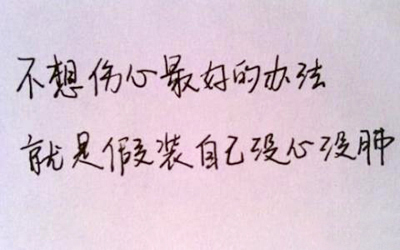 不想伤心最好的办法
就是假装自己没心没肺